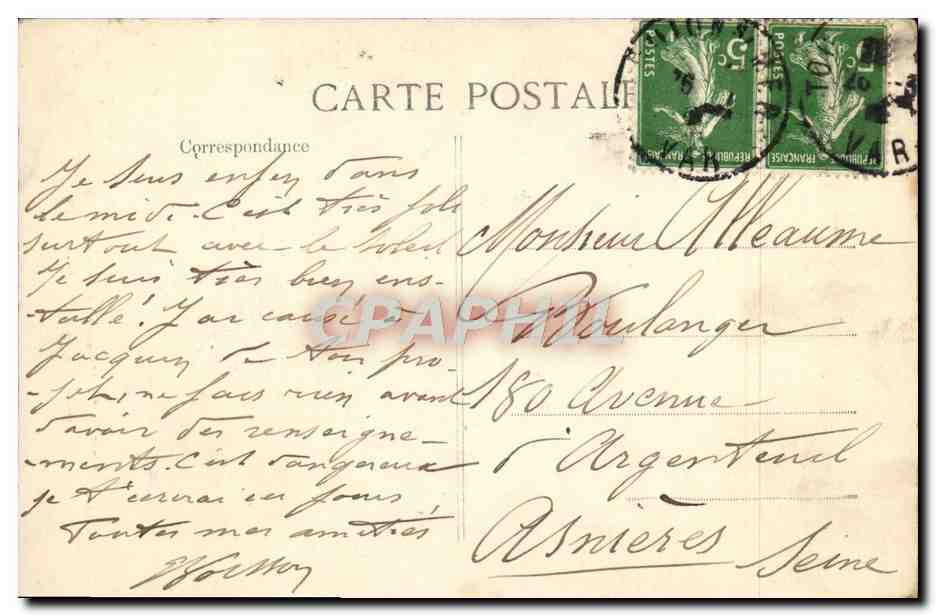 CARTE POSTALE
Correspondance
Je suis enfin dans
le midi. C'est très joli
surtout avec le soleil
Je suis très bien ins-
tallé. J'ai causé à
Jacques de ton pro-
-jet, ne fais rien avant
d'avoir des renseigne-
-ments. C'est dangereux
je t'ecrirai ces jours
Toutes mes amitiés
Monsieur Alleaume
Boulanger
180 Avenue
d'Argenteuil
Asnières
Seine
POSTES 5c REPUBLIQUE FRANÇAISE
POSTES 5c REPUBLIQUE FRANÇAISE
VAR
TOULON
VAR
CPAPHIL